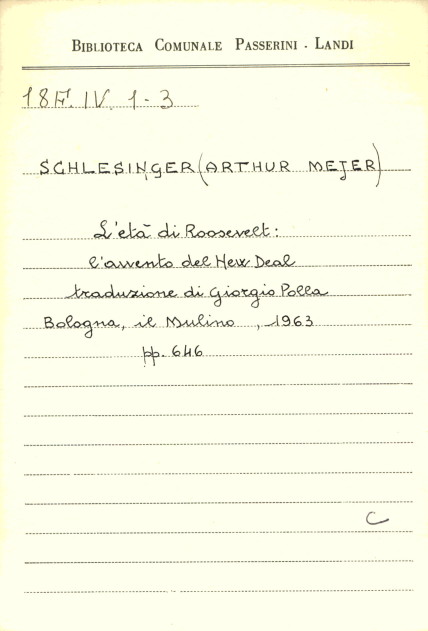 BIBLIOTECA COMUNALE PASSERINI - LANDI
18F. IV. 1-3
SCHLESINGER (ARTHUR MEJER)
L'età di Roosevelt:
l'avvento del New Deal
traduzione di Giorgio Polla
Bologna, il Mulino, 1963
pp. 646
C